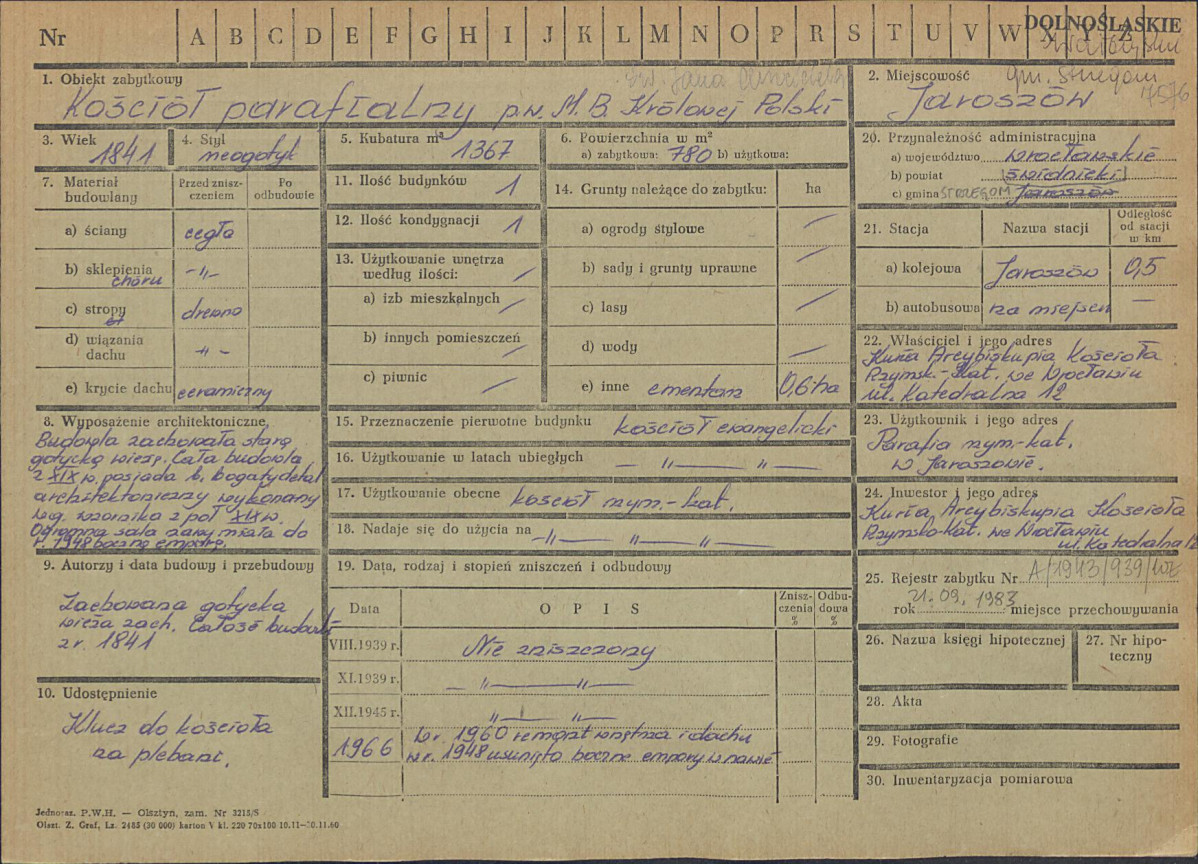 Nr A B C D E F G H I J K L M N O P R S T U V W X Y Z
DOLNOŚLĄSKIE
1. Obiekt zabytkowy
św. Jana
Kościół parafialny p.w. M.B. Królowej Polski
2. Miejscowość
gm. Strzegom
Jaroszów
7576
3. Wiek
1841
4. Styl
neogotyk
5. Kubatura m³
1367
6. Powierzchnia w m²
a) zabytkowa: 780 b) użytkowa:
7. Materiał budowlany
Przed zniszczeniem
Po odbudowie
a) ściany cegła
b) sklepienia -"-
chóru
c) stropy drewno
d) wiązania dachu -"-
e) krycie dachu ceramiczny
8. Wyposażenie architektoniczne
Budowla zachowała starą
gotycką wieżę. Cała budowla
z XIX w. posiada b. bogaty detal
architektoniczny wykonany
wg. wzornika z poł XIX w.
Ogromna sala nawy miała do
r. 1948 boczne empory.
9. Autorzy i data budowy i przebudowy
Zachowana gotycka
wieża zach. Całość budowli
z r. 1841
10. Udostępnienie
Klucz do kościoła
na plebani.
11. Ilość budynków 1
12. Ilość kondygnacji 1
13. Użytkowanie wnętrza
według ilości: /
a) izb mieszkalnych /
b) innych pomieszczeń /
c) piwnic /
14. Grunty należące do zabytku: ha
a) ogrody stylowe /
b) sady i grunty uprawne /
c) lasy /
d) wody /
e) inne cmentarz 0,6 ha
15. Przeznaczenie pierwotne budynku kościół ewangelicki
16. Użytkowanie w latach ubiegłych — " — " —
17. Użytkowanie obecne kościół rzym.-kat.
18. Nadaje się do użycia na -"— "— "—
19. Data, rodzaj i stopień zniszczeń i odbudowy
Data
O P I S
Zniszczenia %
Odbudowa %
VIII.1939 r. Nie zniszczony
XI.1939 r. — "— "—
XII.1945 r. "— "—
1966
W r. 1960 remont wnętrza i dachu
w r. 1948 usunięto boczne empory w nawie
20. Przynależność administracyjna
a) województwo wrocławskie
b) powiat świdnicki
c) gmina STRZEGOM Jaroszów
21. Stacja
Nazwa stacji
Odległość od stacji w km
a) kolejowa Jaroszów 0,5
b) autobusowa na miejscu —
22. Właściciel i jego adres
Kuria Arcybiskupia Kościoła
Rzymsk.-Kat. we Wrocławiu
ul. Katedralna 12
23. Użytkownik i jego adres
Parafia rzym-kat.
w Jaroszowie.
24. Inwestor i jego adres
Kuria Arcybiskupia Kościoła
Rzymsko-Kat. we Wrocławiu
ul. Katedralna 12
25. Rejestr zabytku Nr A/1943/939/Wł
rok 21.09.1983 miejsce przechowywania
26. Nazwa księgi hipotecznej
27. Nr hipoteczny
28. Akta
29. Fotografie
30. Inwentaryzacja pomiarowa
Jednoraz. P.W.H. — Olsztyn, zam. Nr 3215/S
Olszt. Z. Graf, Lz. 2485 (30 000) karton V kl. 220 70x100 10.11—30.11.60